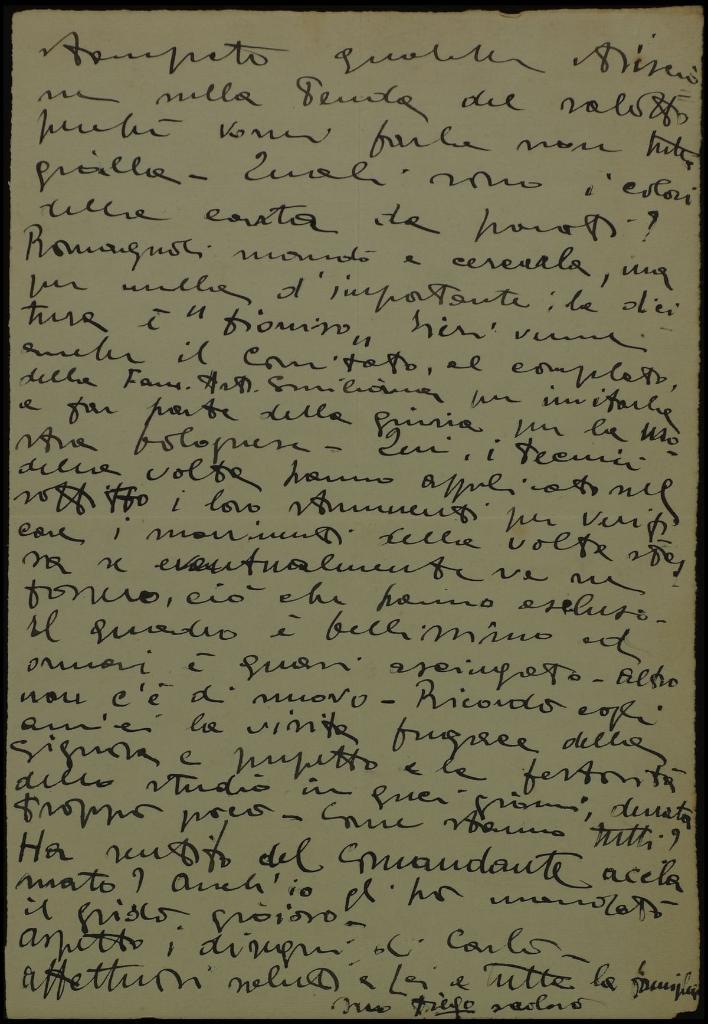 stampato qualche
ne nella Tenda del salotto
perché vorrei farla non tutta
gialla - Quali sono i colori
della carta da parati?
Romagnoli mandò a cercarla, ma
per nulla d'importante; la dici
tura è "Dioniso" Ieri venne
anche il Comitato, al completo,
della Fam. Art. Emiliana per invitarla
a far parte della giuria per la mo-
stra bolognese - Ieri, i tecnici
della volta hanno applicato nel
soffitto i loro strumenti per verifi
care i movimenti della volta stes
sa se eventualmente ve ne
fossero, ciò che hanno escluso -
Il quadro è bellissimo ed
ormai è quasi asciugato - Altro
non c'è di nuovo - Ricordo cogli
amici la visita fugace della
Signora e pupetto e la festosità
dello studio in quei giorni, durata
troppo poco - Come stanno tutti?
Ha sentito del Comandante accla
mato? Anch'io gli ho mandato
il grido gioioso -
Aspetto i disegni di Carlo -
Affettuosi saluti a Lei e tutta la famiglia
suo Diego